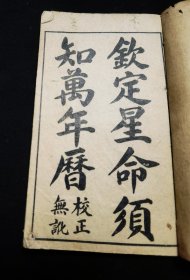 欽定星命須
知萬年曆
校正
無訛